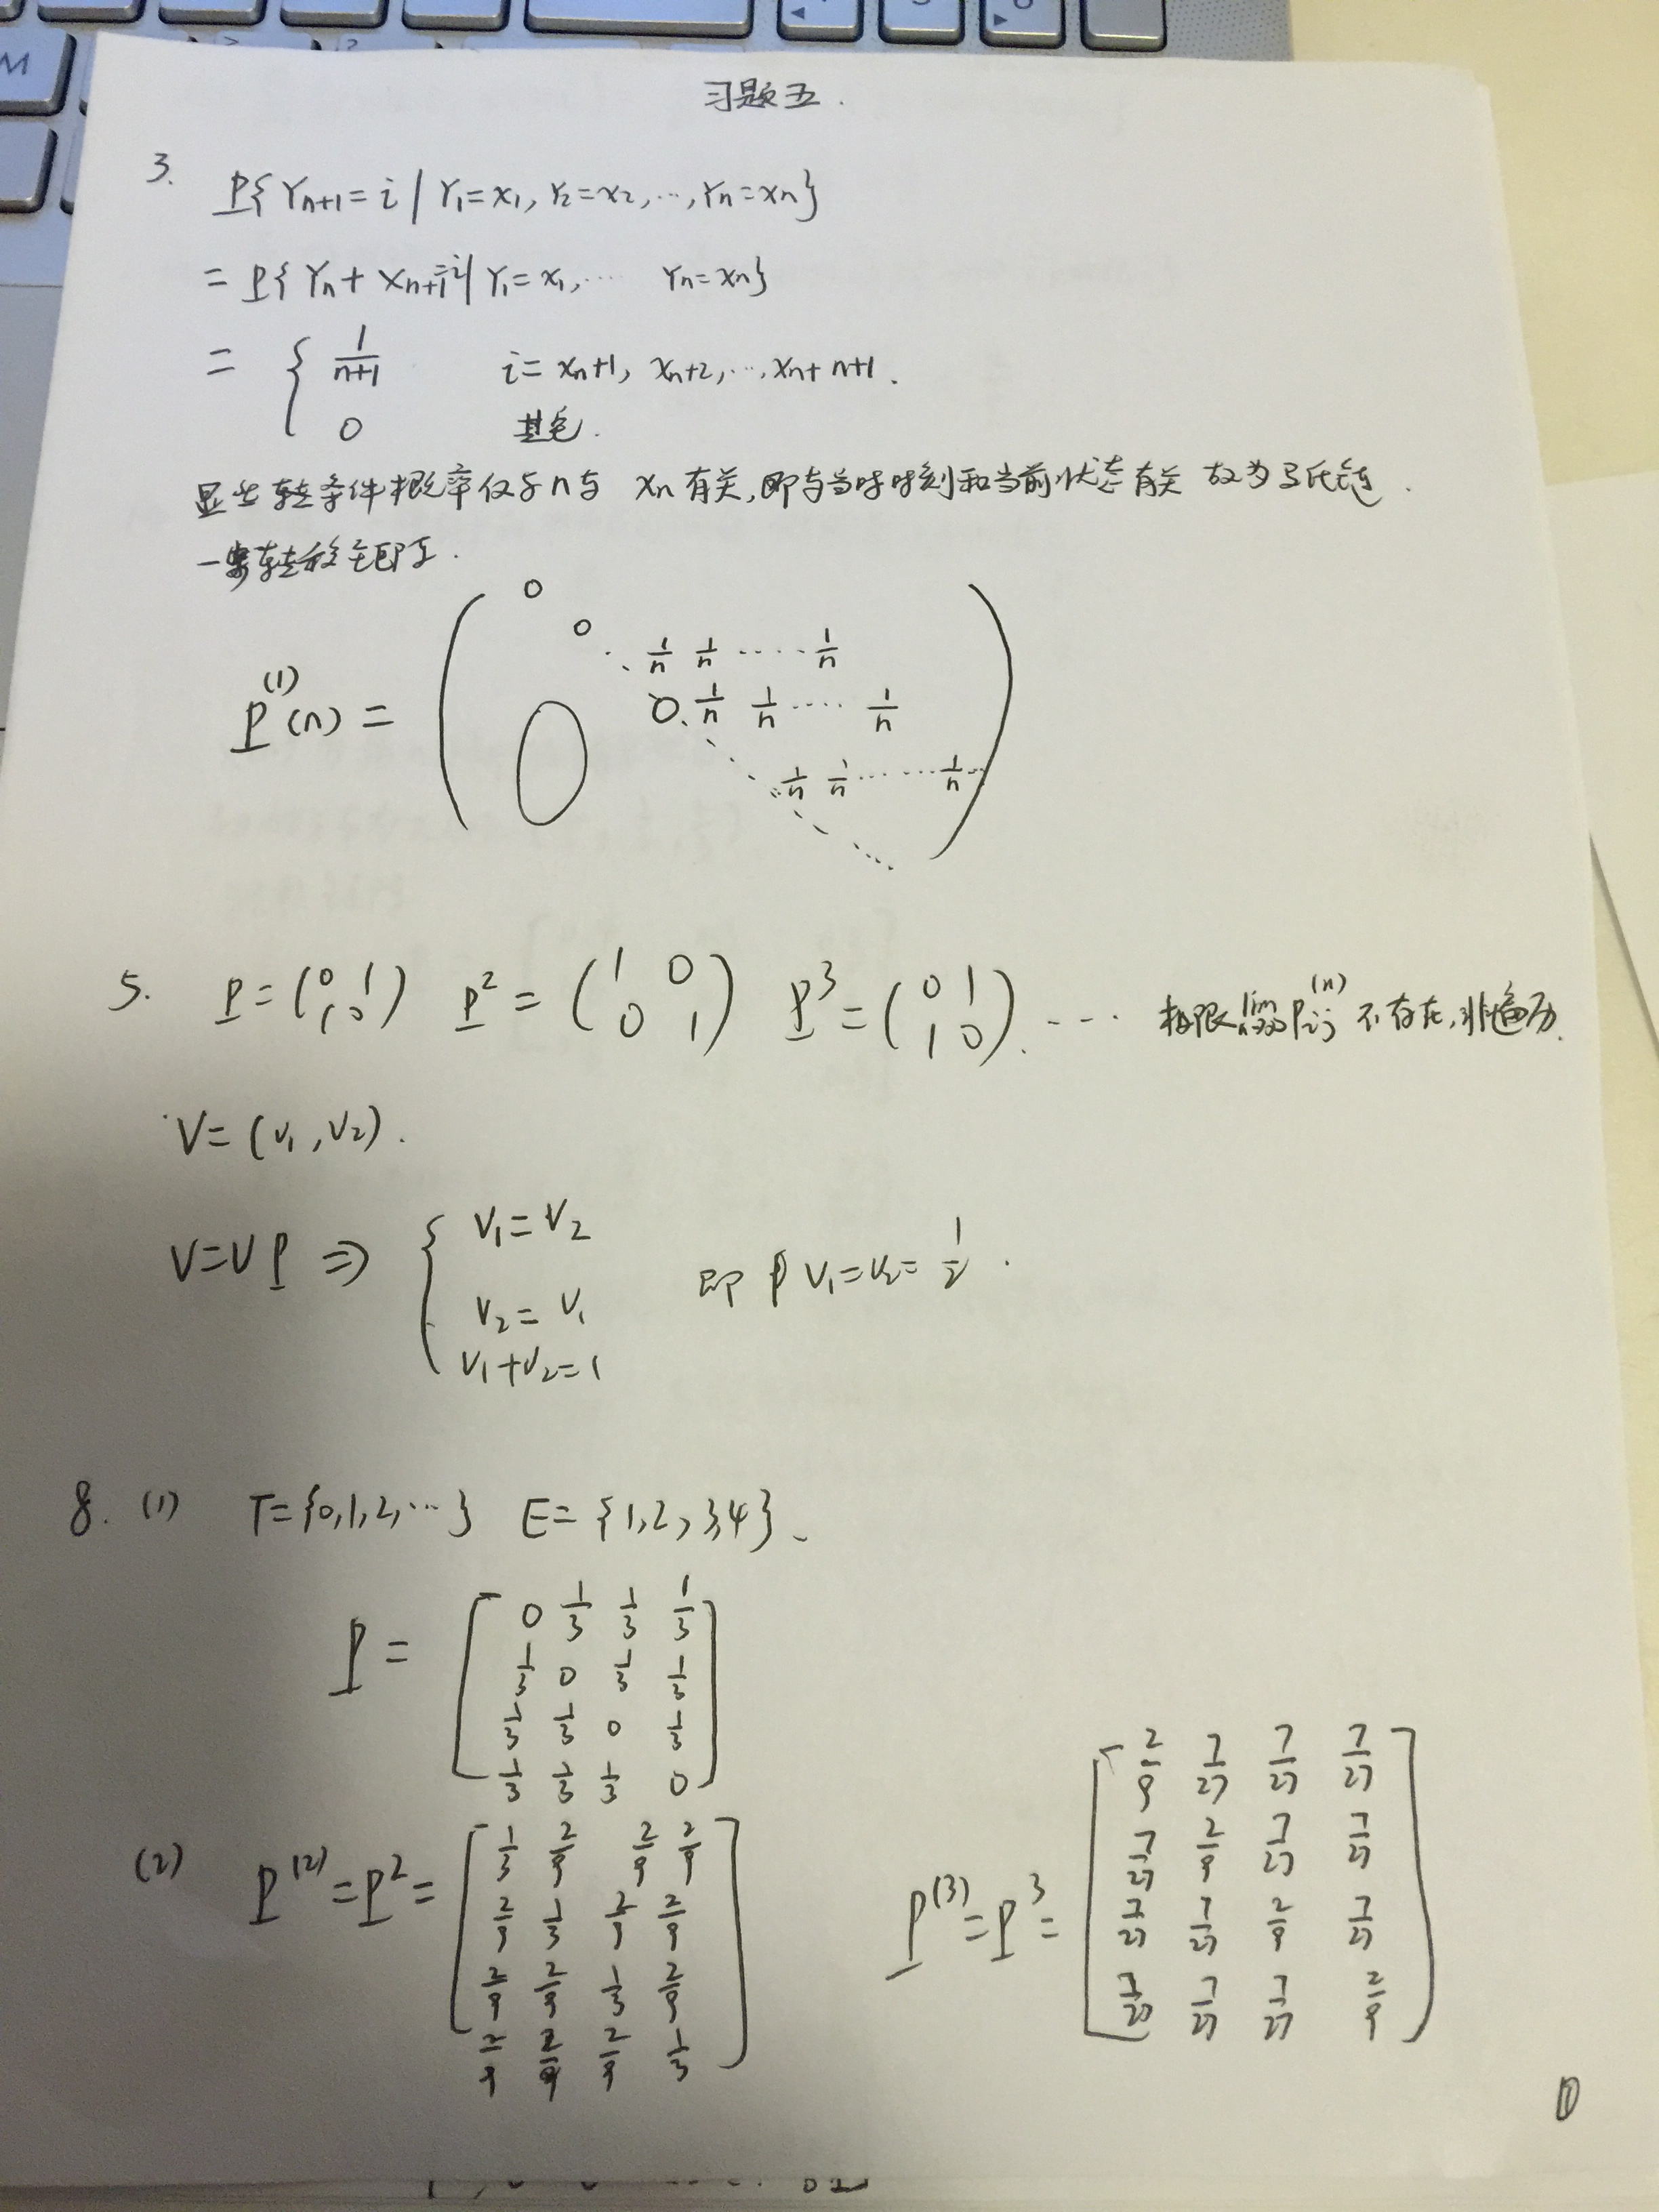 习题五.
3. P{Yn+1=i | Y1=x1, Y2=x2, …, Yn=xn}
= P{Yn + Xn+1=i | Y1=x1, … Yn=xn}
= { 1/(n+1) i= xn+1, xn+2, …, xn+n+1.
0 其它.
显然转条件概率仅与n与 xn有关,即与当时时刻和当前状态有关 故为马氏链.
一步转移矩阵.
0
0 ⋱ 1/n 1/n …… 1/n
P^(1)(n) = ( 0 1/n 1/n …… 1/n )
0 1/n 1/n …… 1/n
5. P=(0 1; 1 0) P²=(1 0; 0 1) P³=(0 1; 1 0). … 极限 lim n→∞ Pij^(n) 不存在,非遍历.
V=(v1, v2).
V=VP ⇒ { v1=v2
v2=v1 即 v1=v2=1/2.
v1+v2=1
8. (1) T={0,1,2,…} E={1,2,3,4}.
P= [ 0 1/3 1/3 1/3
1/3 0 1/3 1/3
1/3 1/3 0 1/3
1/3 1/3 1/3 0 ]
(2) P^(2)=P²= [ 1/3 2/9 2/9 2/9
2/9 1/3 2/9 2/9
2/9 2/9 1/3 2/9
2/9 2/9 2/9 1/3 ]
P^(3)=P³= [ 2/9 7/27 7/27 7/27
7/27 2/9 7/27 7/27
7/27 7/27 2/9 7/27
7/27 7/27 7/27 2/9 ]
①
M